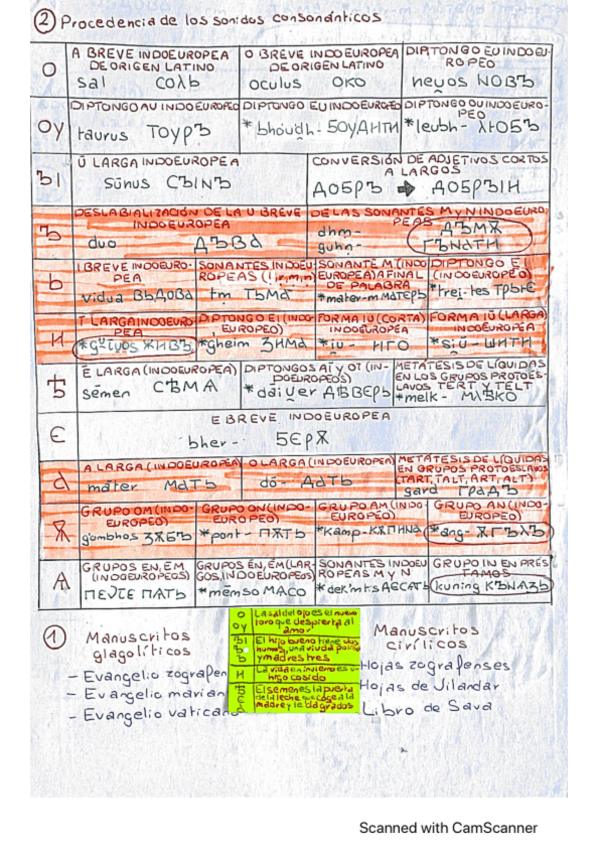 ② Procedencia de los sonidos consonánticos
O
A BREVE INDOEUROPEA DE ORIGEN LATINO
sal СОЛЬ
O BREVE INDOEUROPEA DE ORIGEN LATINO
oculus ОКО
DIPTONGO EU INDOEUROPEO
neu̯os НОВЪ
ОУ
DIPTONGO AU INDOEUROPEO
taurus ТОУРЪ
DIPTONGO EU INDOEUROPEO
*bhoudh- БОУДИТИ
DIPTONGO OU INDOEUROPEO
*leubh- ЛЮБЪ
ЪІ
Ū LARGA INDOEUROPEA
Sūnus СЪІNЪ
CONVERSIÓN DE ADJETIVOS CORTOS A LARGOS
ДОБРЪ ➡ ДОБРЪІН
Ъ
DESLABIALIZACIÓN DE LA U BREVE INDOEUROPEA
duo ДЪВА
DE LAS SONANTES M y N INDOEUROPEAS
dhm- ДЪМѪ
guhn- ГЪNАТИ
Ь
I BREVE INDOEUROPEA
vidua ВЬДОВА
SONANTES INDOEUROPEAS
tm ТЬМА
SONANTE M (INDOEUROPEA) A FINAL DE PALABRA
*mater-m МАТЕРЬ
DIPTONGO EI (INDOEUROPEO)
*trei̯-tes ТРЬЕ
И
I LARGA INDOEUROPEA
ЖИВЪ
DIPTONGO EI (INDOEUROPEO)
*gheim ЗИМА
FORMA IŬ (CORTA) INDOEUROPEA
ИГО
FORMA IŪ (LARGA) INDOEUROPEA
ШИТИ
Ѣ
Ē LARGA (INDOEUROPEA)
sēmen СѢМА
DIPTONGOS AI y OI (INDOEUROPEOS)
*dāiu̯er ДѢВЕРЬ
METÁTESIS DE LÍQUIDAS EN LOS GRUPOS PROTOESLAVOS TERT Y TELT
*melk- МЛѢКО
Є
E BREVE INDOEUROPEA
bher- БЄРѪ
А
A LARGA (INDOEUROPEA)
māter МАТЬ
O LARGA (INDOEUROPEA)
dō- ДАТЬ
METÁTESIS DE LÍQUIDAS EN GRUPOS PROTOESLAVOS (TART, TALT, ART, ALT)
gard ГРАДЪ
Ѫ
GRUPO OM (INDOEUROPEO)
gombhos ЗѪБЪ
GRUPO ON (INDOEUROPEO)
*pont- ПѪТЬ
GRUPO AM (INDOEUROPEO)
*Kamp- КѪПИNА
GRUPO AN (INDOEUROPEO)
*ang- ѪГЪЛЪ
Ѧ
GRUPOS EN, EM (INDOEUROPEOS)
GRUPOS ĒN, ĒM (LARGOS, INDOEUROPEOS)
*mēmso МАСО
SONANTES INDOEUROPEAS M y N
*dek'mts
GRUPO IN EN PRÉSTAMOS
kuning КЪNАЗЬ
①
Manuscritos
glagolíticos
- Evangelio zografen
- Evangelio marian
- Evangelio vatican
O
ОУ
La sal del ojo es el nuevo
toro que despierta al
amor
ЪІ
Ъ
Ь
El hijo bueno tiene dos
humos, una viuda
y madres tres
И
La vida en invierno es
higo cosido
Ѣ
Є
А
El semen es la puerta
de la leche que coge a la
madre y le da grados
Manuscritos
cirílicos
Hojas zografenses
Hojas de Vilandar
Libro de Sava
Scanned with CamScanner